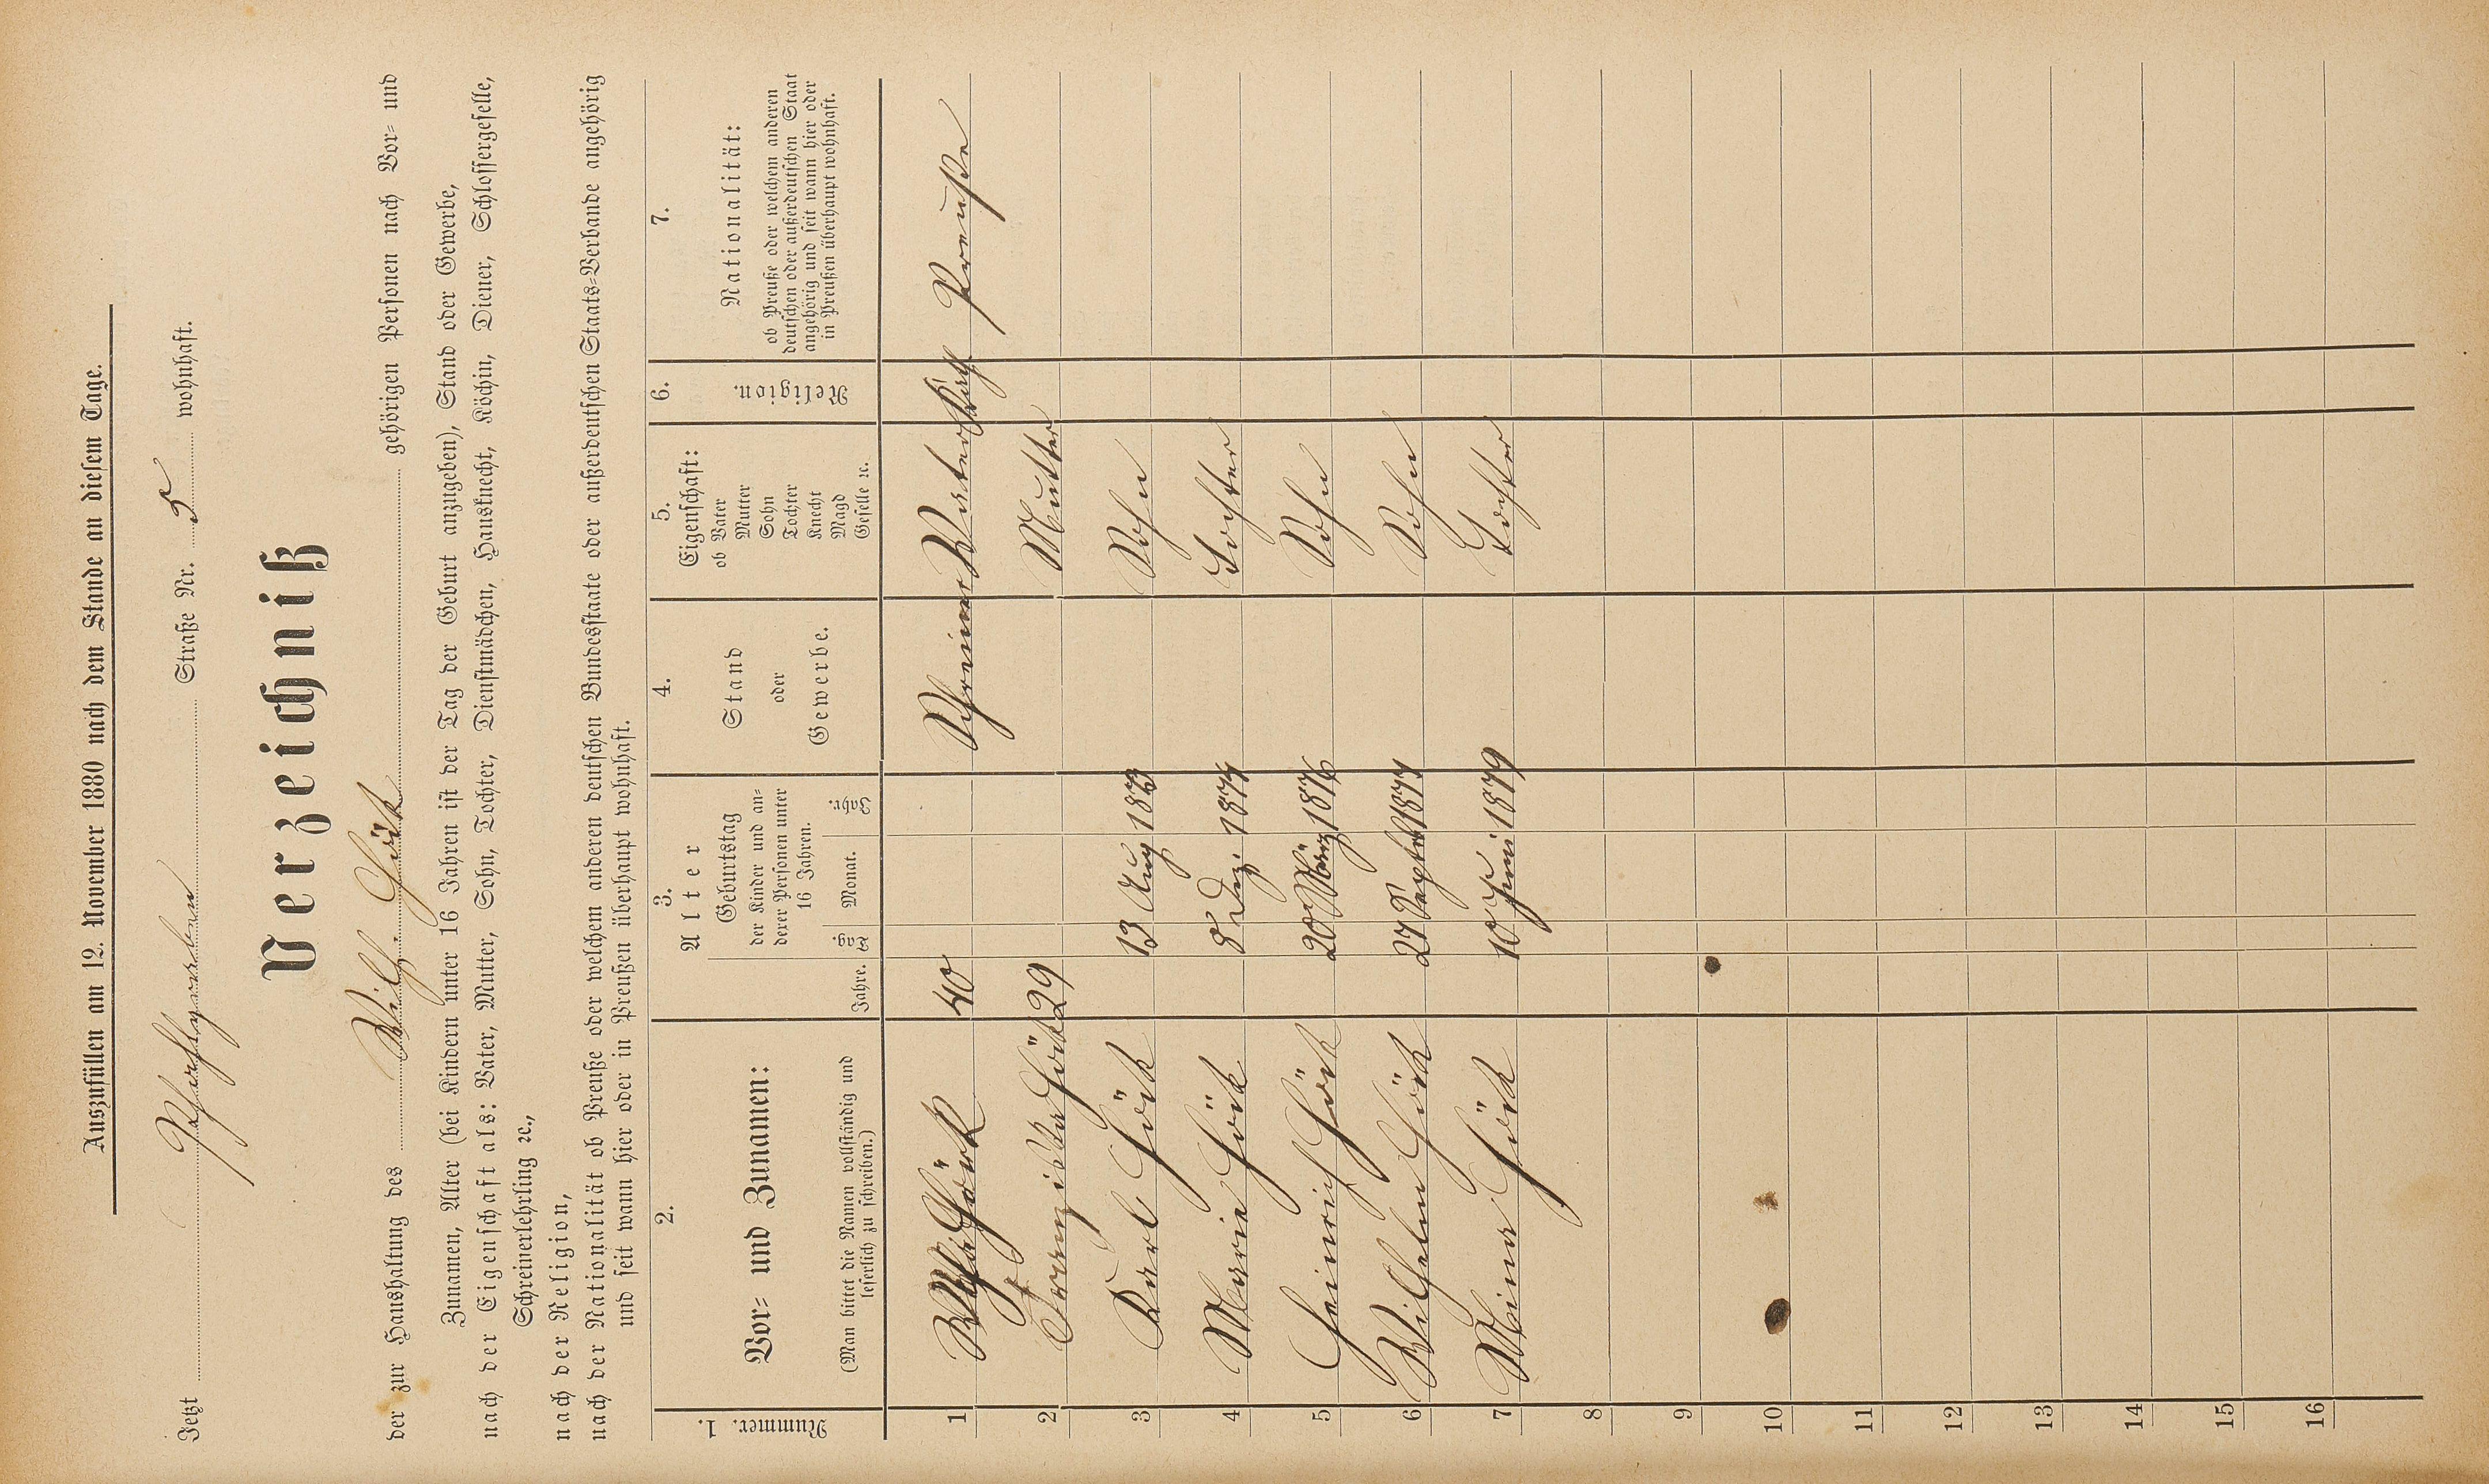 Auszufüllen am 12. November 1880 nach dem Stande an diesem Tage.
Jetzt Straße Nr. 5 wohnhaft.
Verzeichniß
der zur Haushaltung des Wilh. Höck gehörigen Personen nach Vor- und
Zunamen, Alter (bei Kindern unter 16 Jahren ist der Tag der Geburt anzugeben), Stand oder Gewerbe,
nach der Eigenschaft als: Vater, Mutter, Sohn, Tochter, Dienstmädchen, Hausknecht, Köchin, Diener, Schlossergeselle,
Schreinerlehrling ꝛc.,
nach der Religion,
nach der Nationalität ob Preuße oder welchem anderen deutschen Bundesstaate oder außerdeutschen Staats-Verbande angehörig
und seit wann hier oder in Preußen überhaupt wohnhaft.
1. Nummer.
2.
Vor- und Zunamen:
(Man bittet die Namen vollständig und
leserlich zu schreiben.)
3.
Alter
Jahre.
Geburtstag
der Kinder und an-
derer Personen unter
16 Jahren.
Tag Monat. Jahr.
4.
Stand
oder
Gewerbe.
5.
Eigenschaft:
ob Vater
Mutter
Sohn
Tochter
Knecht
Magd
Geselle ꝛc.
6.
Religion.
7.
Nationalität:
ob Preuße oder welchem anderen
deutschen oder außerdeutschen Staat
angehörig und seit wann hier oder
in Preußen überhaupt wohnhaft.
1 Höck 40 Schreiner Vater Kath Preuße
2 Franziska Höck 29 Mutter
3 Karl Höck 13 Aug 1873 Sohn
4 Marie Höck 8 Dez. 1874 Tochter
5 Heinrich Höck 20 März 1876 Sohn
6 Wilhelm Höck 27 Septbr 1877 Sohn
7 Mina Höck 10 Juni 1879 Tochter
8
9
10
11
12
13
14
15
16